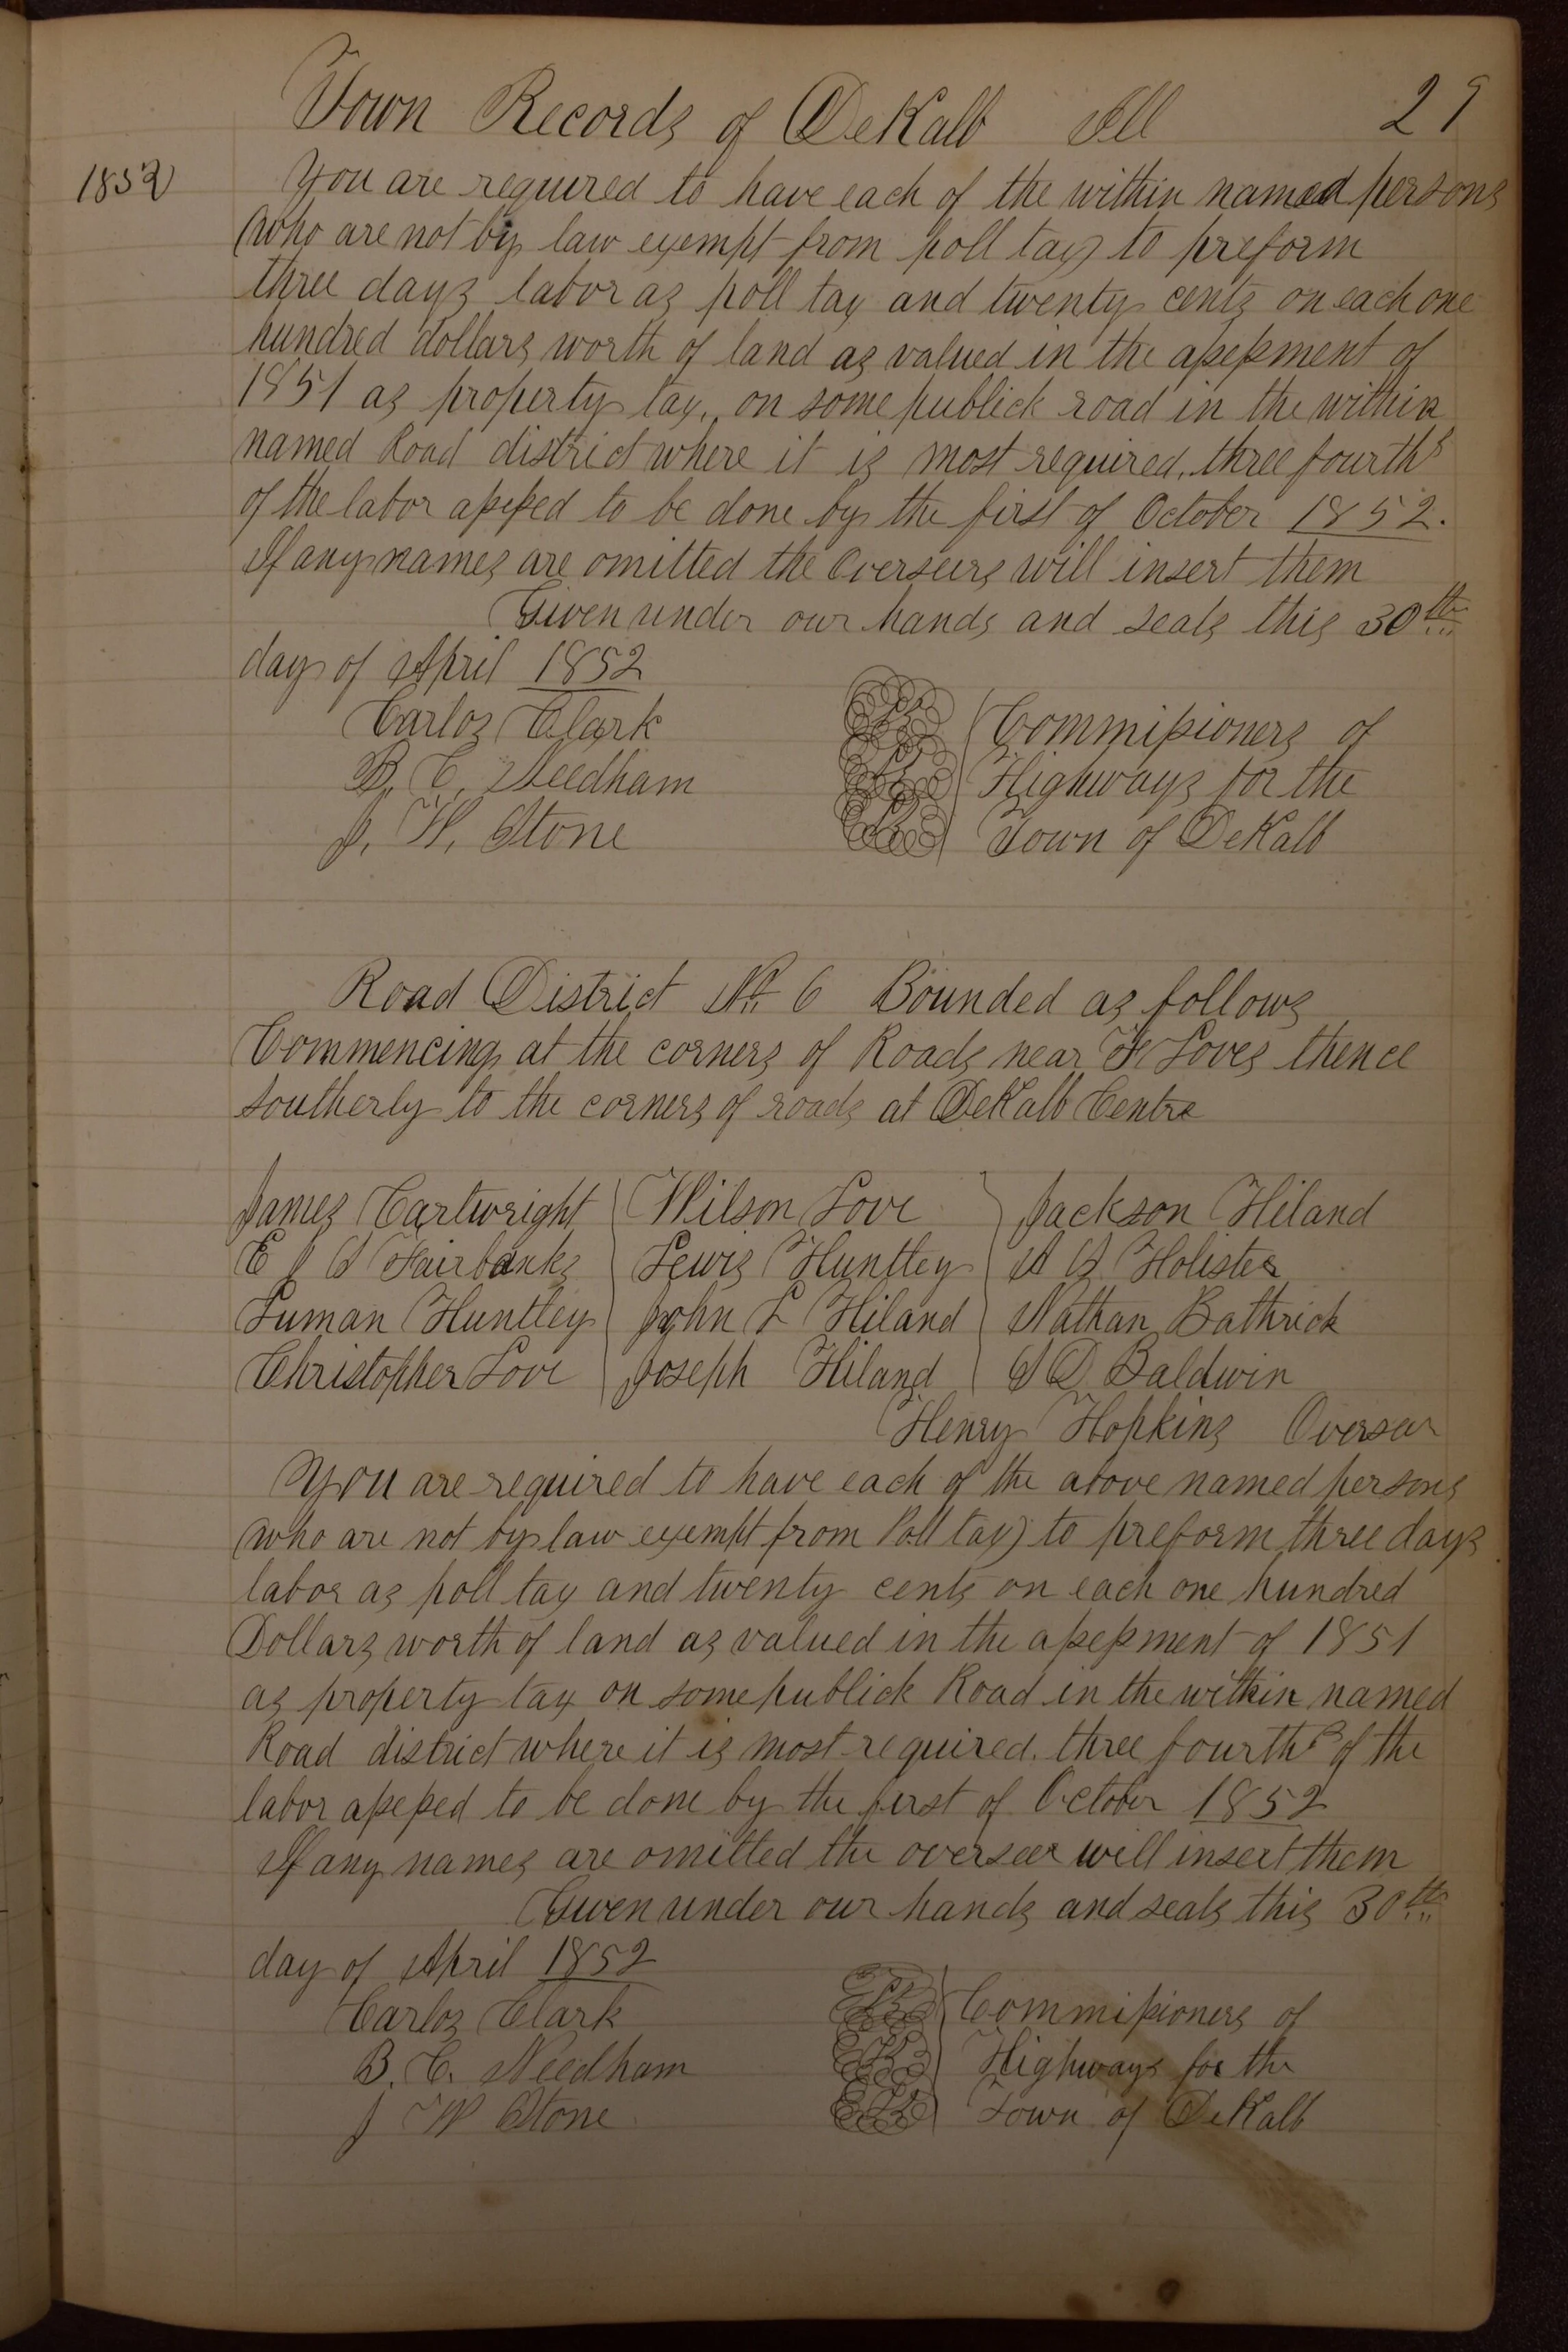 Town Records of DeKalb Ill 29
1852
You are required to have each of the within named persons
(who are not by law exempt from poll tax) to preform
three days labor as poll tax and twenty cents on each one
hundred dollars worth of land as valued in the assessment of
1851 as property tax, on some publick road in the within
named Road district where it is most required, three fourths
of the labor assessed to be done by the first of October 1852.
If any names are omitted the Overseers will insert them
Given under our hands and seals this 30th
day of April 1852
Carlos Clark LS Commissioners of
B. C. Needham LS Highways for the
J. W. Stone LS Town of DeKalb
Road District No 6 Bounded as follows
Commencing at the corners of Roads near Loves thence
southerly to the corners of roads at DeKalb Centre
James Cartwright Wilson Love Jackson Hiland
E J S Fairbanks Lewis Huntley Holister
Luman Huntley John L Hiland Nathan Bathrick
Christopher Love Joseph Hiland S D Baldwin
Henry Hopkins Overseer
You are required to have each of the above named persons
(who are not by law exempt from Poll tax) to preform three days
labor as poll tax and twenty cents on each one hundred
Dollars worth of land as valued in the assessment of 1851
as property tax on some publick Road in the within named
Road district where it is most required. three fourths of the
labor assessed to be done by the first of October 1852
If any names are omitted the overseer will insert them
Given under our hands and seals this 30th
day of April 1852
Carlos Clark LS Commissioners of
B. C. Needham LS Highways for the
J W Stone LS Town of DeKalb